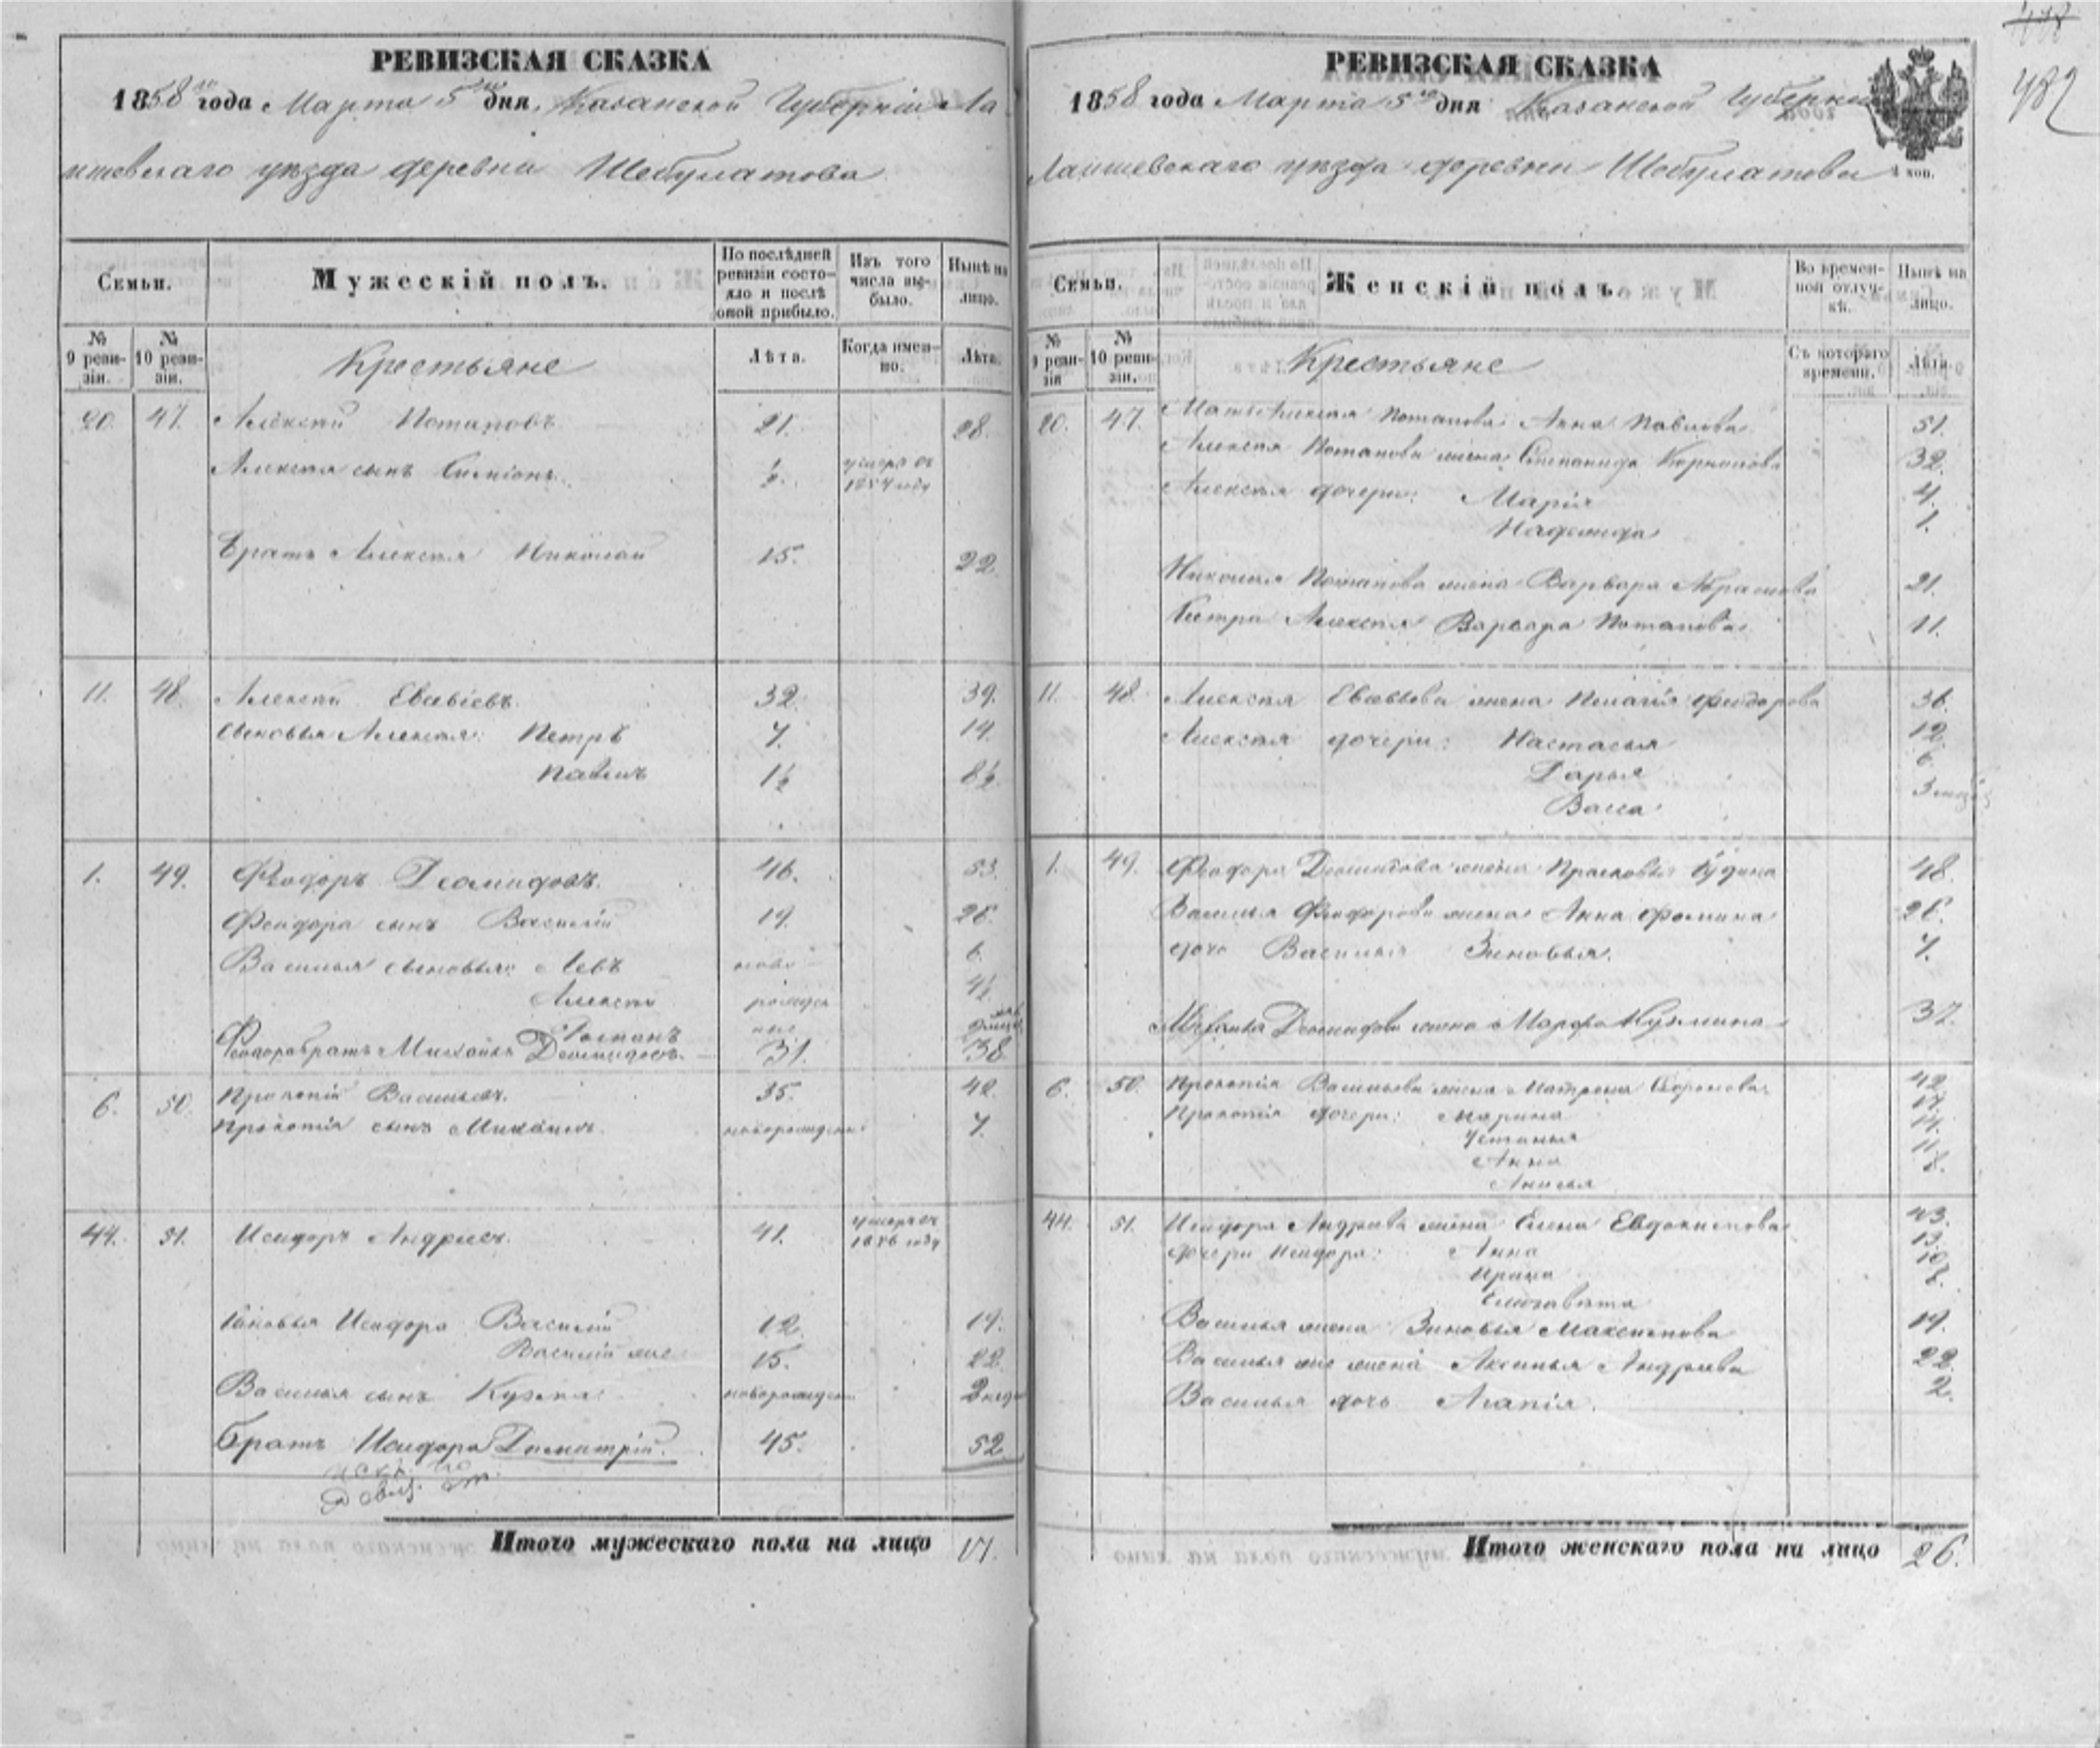 РЕВИЗСКАЯ СКАЗКА
1858го года Марта 5го дня, Казанской Губерніи Ла
ишевскаго уѣзда деревни Шебулатова
Семьи.
Мужескій полъ.
По послѣдней ревизіи состояло и послѣ оной прибыло.
Изъ того числа выбыло.
Нынѣ на лицо.
№ 9 ревизіи.
№ 10 ревизіи.
Крестьяне
Лѣта.
Когда именно.
Лѣта.
20. 47. Алексѣй Потаповъ 21. 28.
Алексѣя сынъ Симіонъ ½. умеръ въ 1854 году
Братъ Алексѣя Николай 15. 22.
11. 48. Алексѣй Евсевіевъ 32. 39.
Сыновья Алексѣя: Петръ 7. 14.
Павелъ 1½ 8½
1. 49. Феодоръ Деомидовъ. 46. 53.
Феодора сынъ Василій 19. 26.
Василья сыновья: Левъ ново 6.
Алексѣй рожден 4½
Романъ ные
Феодора братъ Михайла Деомидовъ 31. 38
6. 50. Прокопій Васильевъ. 35. 42.
Прокопія сынъ Михаилъ. новорожден 7.
44. 51. Исидоръ Андреевъ. 41. умеръ въ 1856 году
Сыновья Исидора Василій 12. 19.
Василій же 15. 22.
Василья сынъ Кузма новорожден 2 нед
Братъ Исидора Димитрій. 45. 52
Итого мужескаго пола на лицо 17.
РЕВИЗСКАЯ СКАЗКА
1858 года Марта 5го дня Казанской Губерніи
Лаишевскаго уѣзда деревни Шебулатова
коп.
482
Семьи.
Женскій полъ.
Во временной отлучкѣ.
Нынѣ на лицо.
№ 9 ревизіи
№ 10 ревизіи.
Крестьяне
Съ котораго времени.
Лѣта.
20. 47. Мать Алексѣя Потапова Анна Павлова 51.
Алексѣя Потапова жена Степанида Корнилова 32.
Алексѣя дочери: Марія 4.
Надежда 1.
Николая Потапова жена Варвара Абрамова 21.
Сестра Алексѣя Варвара Потапова 11.
11. 48. Алексѣя Евсевьева жена Пелагія Феодорова 36.
Алексѣя дочери: Настасья 12.
Дарья 6.
Васса 3 мѣс
1. 49. Феодора Деомидова жена Прасковья Юдина 48.
Василья Феодорова жена Анна Фомина 26.
дочь Василья Зиновья. 7.
Михаила Деомидова жена Марфа Кузмина 37.
6. 50. Прокопія Васильева жена Матрена 42
Прокопія дочери: Марина 17.
Устинья 14.
Анна 11.
Анисья 8.
44. 51. Исидора Андреева жена Елена Евдокимова 43.
дочери Исидора: Анна 13.
Ирина 10
Елизавета 8.
Василья жена Зиновья Максимова 19.
Василья же жена Аксинья Андреева 22.
Василья дочь Агапія. 2.
Итого женскаго пола на лицо 26.